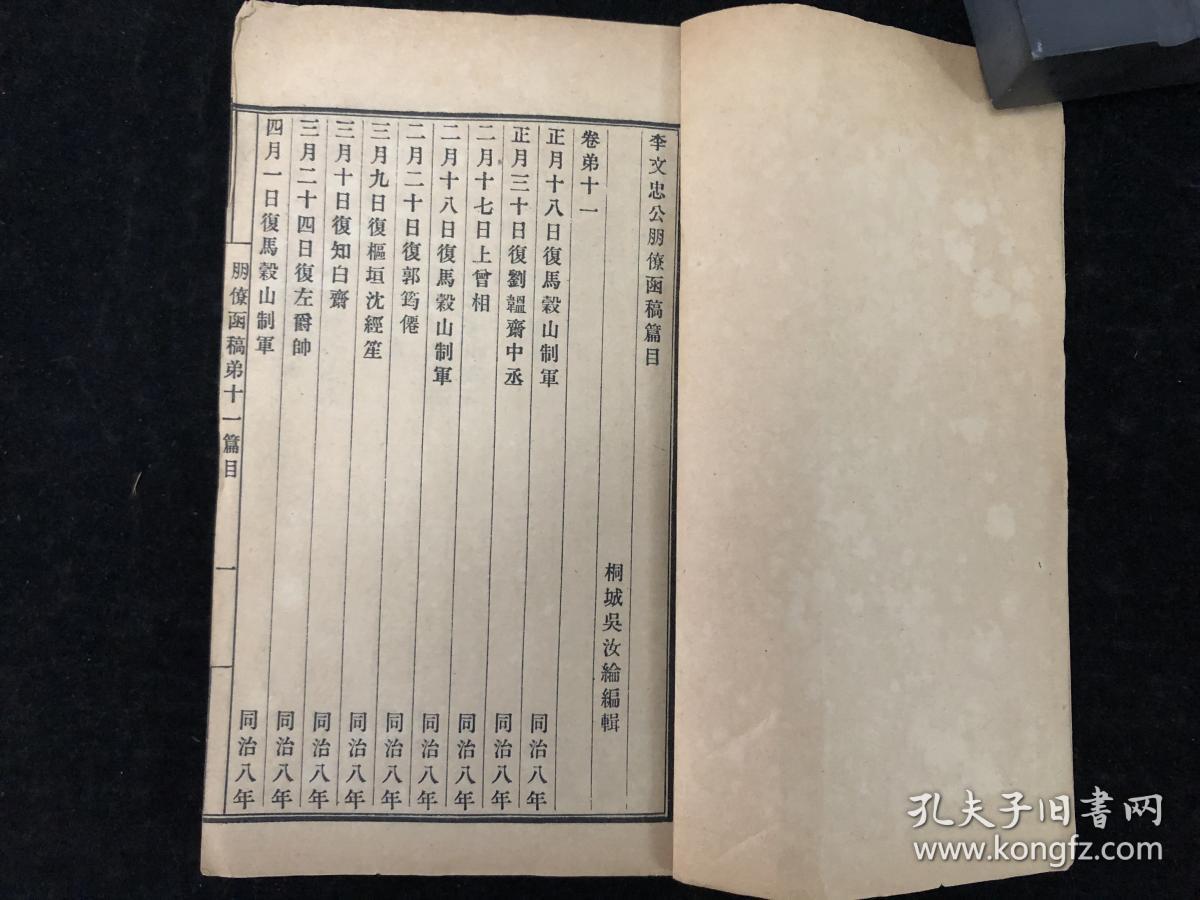 李文忠公朋僚函稿篇目
桐城吳汝綸編輯
卷弟十一
正月十八日復馬穀山制軍 同治八年
正月三十日復劉韞齋中丞 同治八年
二月十七日上曾相 同治八年
二月十八日復馬穀山制軍 同治八年
二月二十日復郭筠僊 同治八年
三月九日復樞垣沈經笙 同治八年
三月十日復知白齋 同治八年
三月二十四日復左爵帥 同治八年
四月一日復馬穀山制軍 同治八年
朋僚函稿弟十一篇目 一
孔夫子旧书网
www.kongfz.com